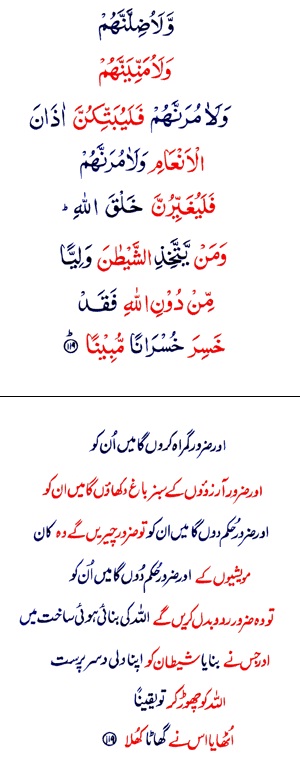 وَّلَاُضِلَّنَّهُمْ
وَلَاُمَنِّيَنَّهُمْ
وَلَاٰمُرَنَّهُمْ فَلَيُبَتِّكُنَّ اٰذَانَ
الْاَنْعَامِ وَلَاٰمُرَنَّهُمْ
فَلَيُغَيِّرُنَّ خَلْقَ اللهِ ؕ
وَمَنْ يَّتَّخِذِ الشَّيْطٰنَ وَلِيًّا
مِّنْ دُوْنِ اللهِ فَقَدْ
خَسِرَ خُسْرَانًا مُّبِيْنًا ؕ ۱۱۹
اور ضرور گمراہ کروں گا میں اُن کو
اور ضرور آرزوؤں کے سبز باغ دکھاؤں گا میں ان کو
اور ضرور حُکم دوں گا میں ان کو تو ضرور چیریں گے وہ کان
مویشیوں کے اور ضرور حُکم دُوں گا میں اُن کو
تو وہ ضرور ردوبدل کریں گے اللہ کی بنائی ہوئی ساخت میں
اور جس نے بنایا شیطان کو اپنا ولی و سرپرست
اللہ کو چھوڑ کر تو یقیناً
اُٹھایا اس نے گھاٹا کُھلا ۱۱۹